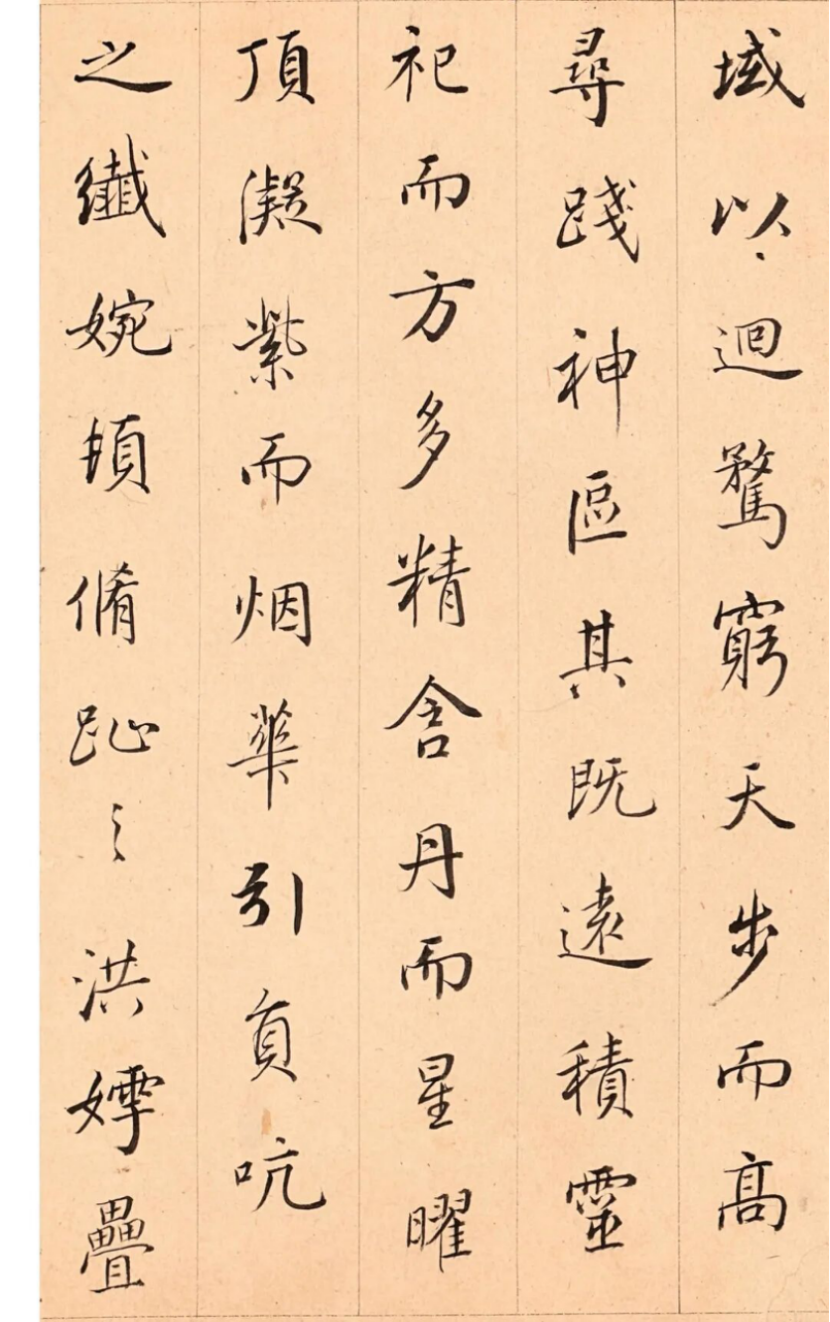 域以迴騖窮天步而高
尋踐神區其既遠積靈
祀而方多精含丹而星曜
頂凝紫而烟華引員吭
之纖婉頓脩趾之洪姱疊